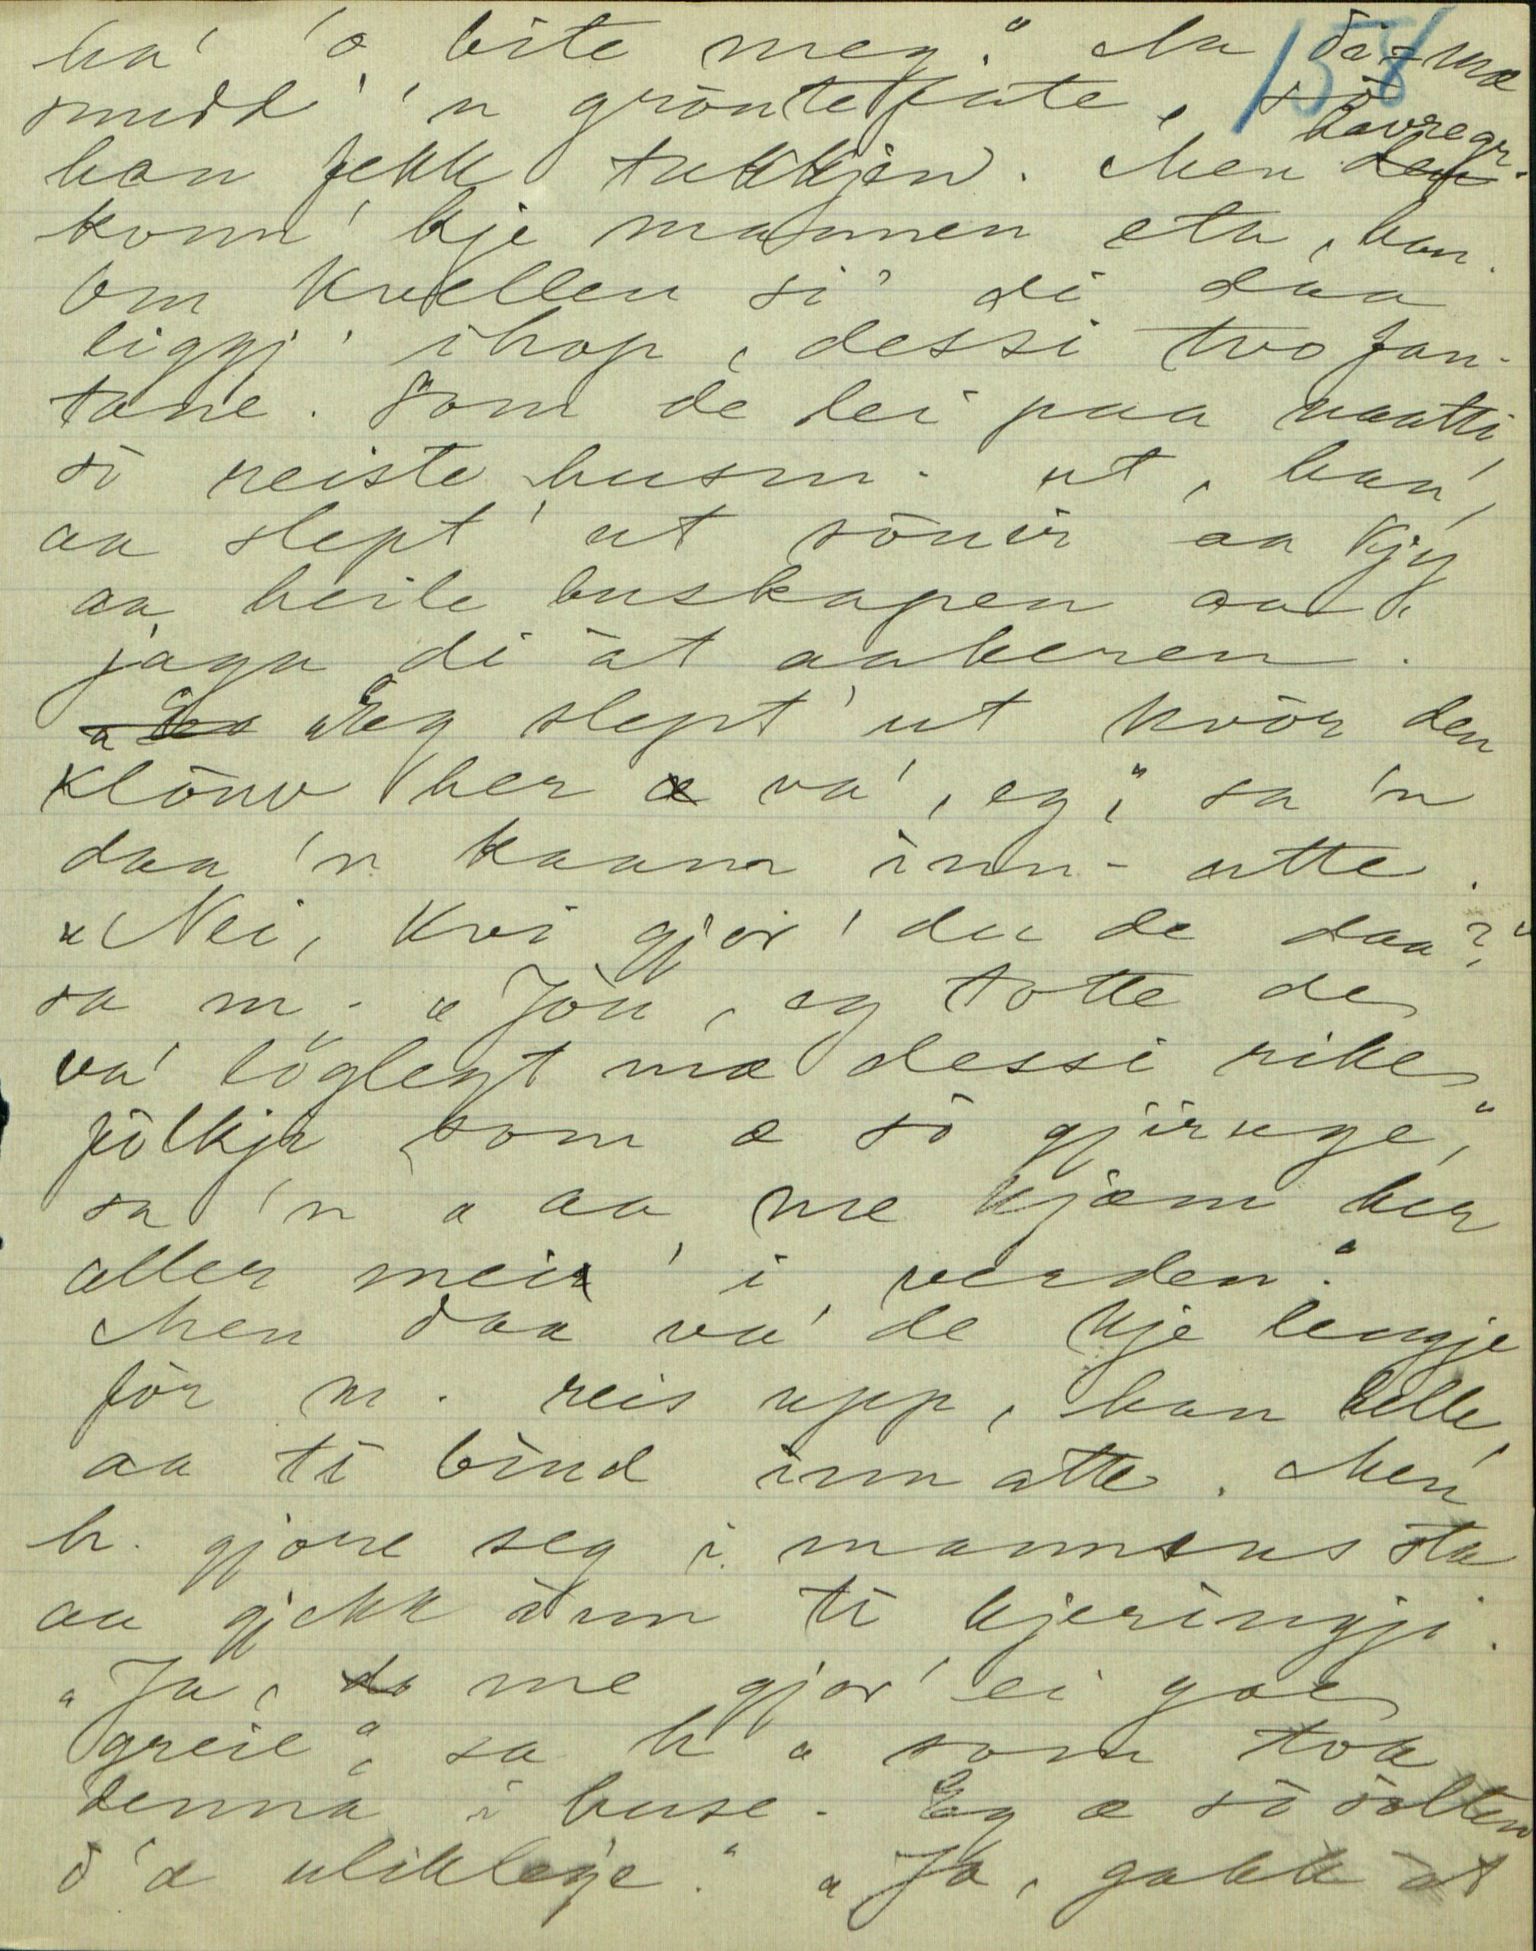 158
ha' 'o bite meg." Aa di-mæ
smidd' 'n gröntefate, sö
han fekk tukkjen. Men havregr.
konn' kje mannen eta, han.
Om kvellen si' di daa
liggj' ihop, dessi two fan-
tane. Som de lei paa naatti,
so reiste husm. ut, han,
aa slept' ut söuir aa kjy
aa heile buskapen aa
jaga di åt aakeren.
"Eg slept' ut kvör den
klöuv her va', eg," sa 'n
daa 'n kaam inn-atte.
"Nei, kvi gjor' du de daa?"
sa m. "Jöu, eg totte de
va' löglegt mæ dessi rike
fölkje som æ so gjiruge,"
sa 'n "aa me kjæm her
aller mei' i verden."
Men daa va' de kje lengje
för m. reis upp, han helle,
aa ti bind inn atte. Men
h. gjore seg i mannens sta
aa gjekk inn ti kjeringji.
"Ja, me gjor' ei goe
greie", sa h "som tok
denna i huse. Eg æ so sölten
d'æ ulikleje." "Ja, gakk åt